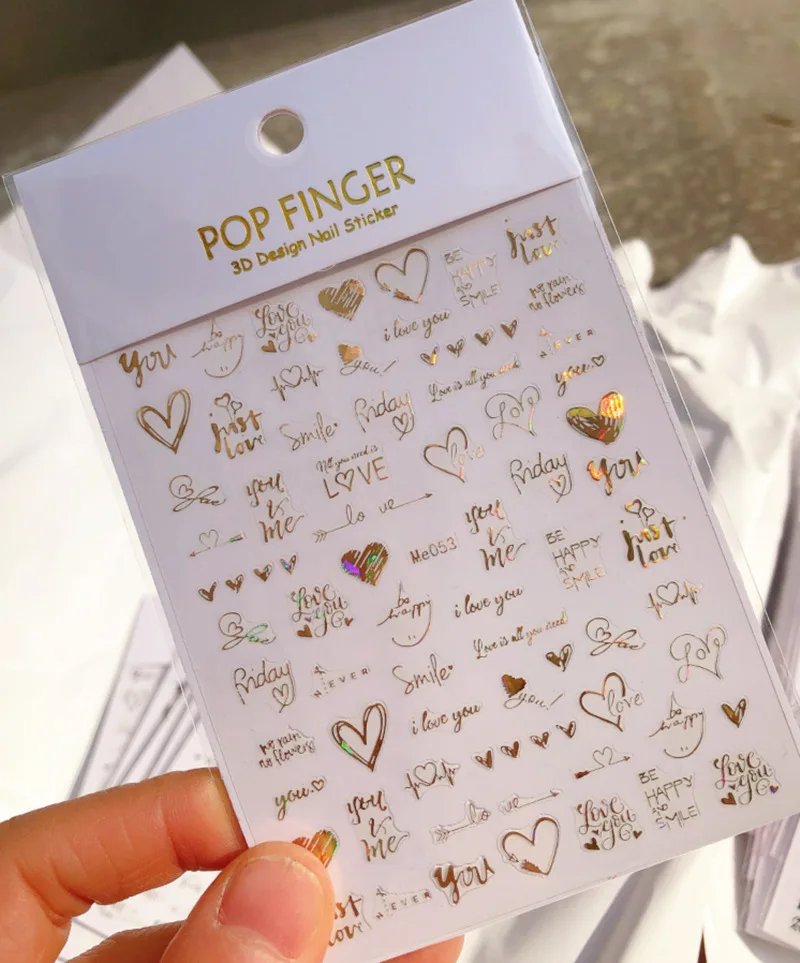 POP FINGER
3D Design Nail Sticker
just
love
BE
HAPPY
AND
SMILE
no rain
no flowers
Love
You
i love you
be
happy
you
you!
NEVER
you
Love is all you need
just
love
Smile
Friday
Love
All you need is
LOVE
love
Friday
you
you
&
me
love
Me053
you
&
me
BE
HAPPY
AND
SMILE
just
love
Love
You
be
happy
i love you
Love is all you need
Friday
NEVER
Smile
you!
love
Love
be
happy
no rain
no flowers
i love you
you
you
&
me
love
Love
You
BE
HAPPY
AND
SMILE
Love
You
you
NEVER
just
love